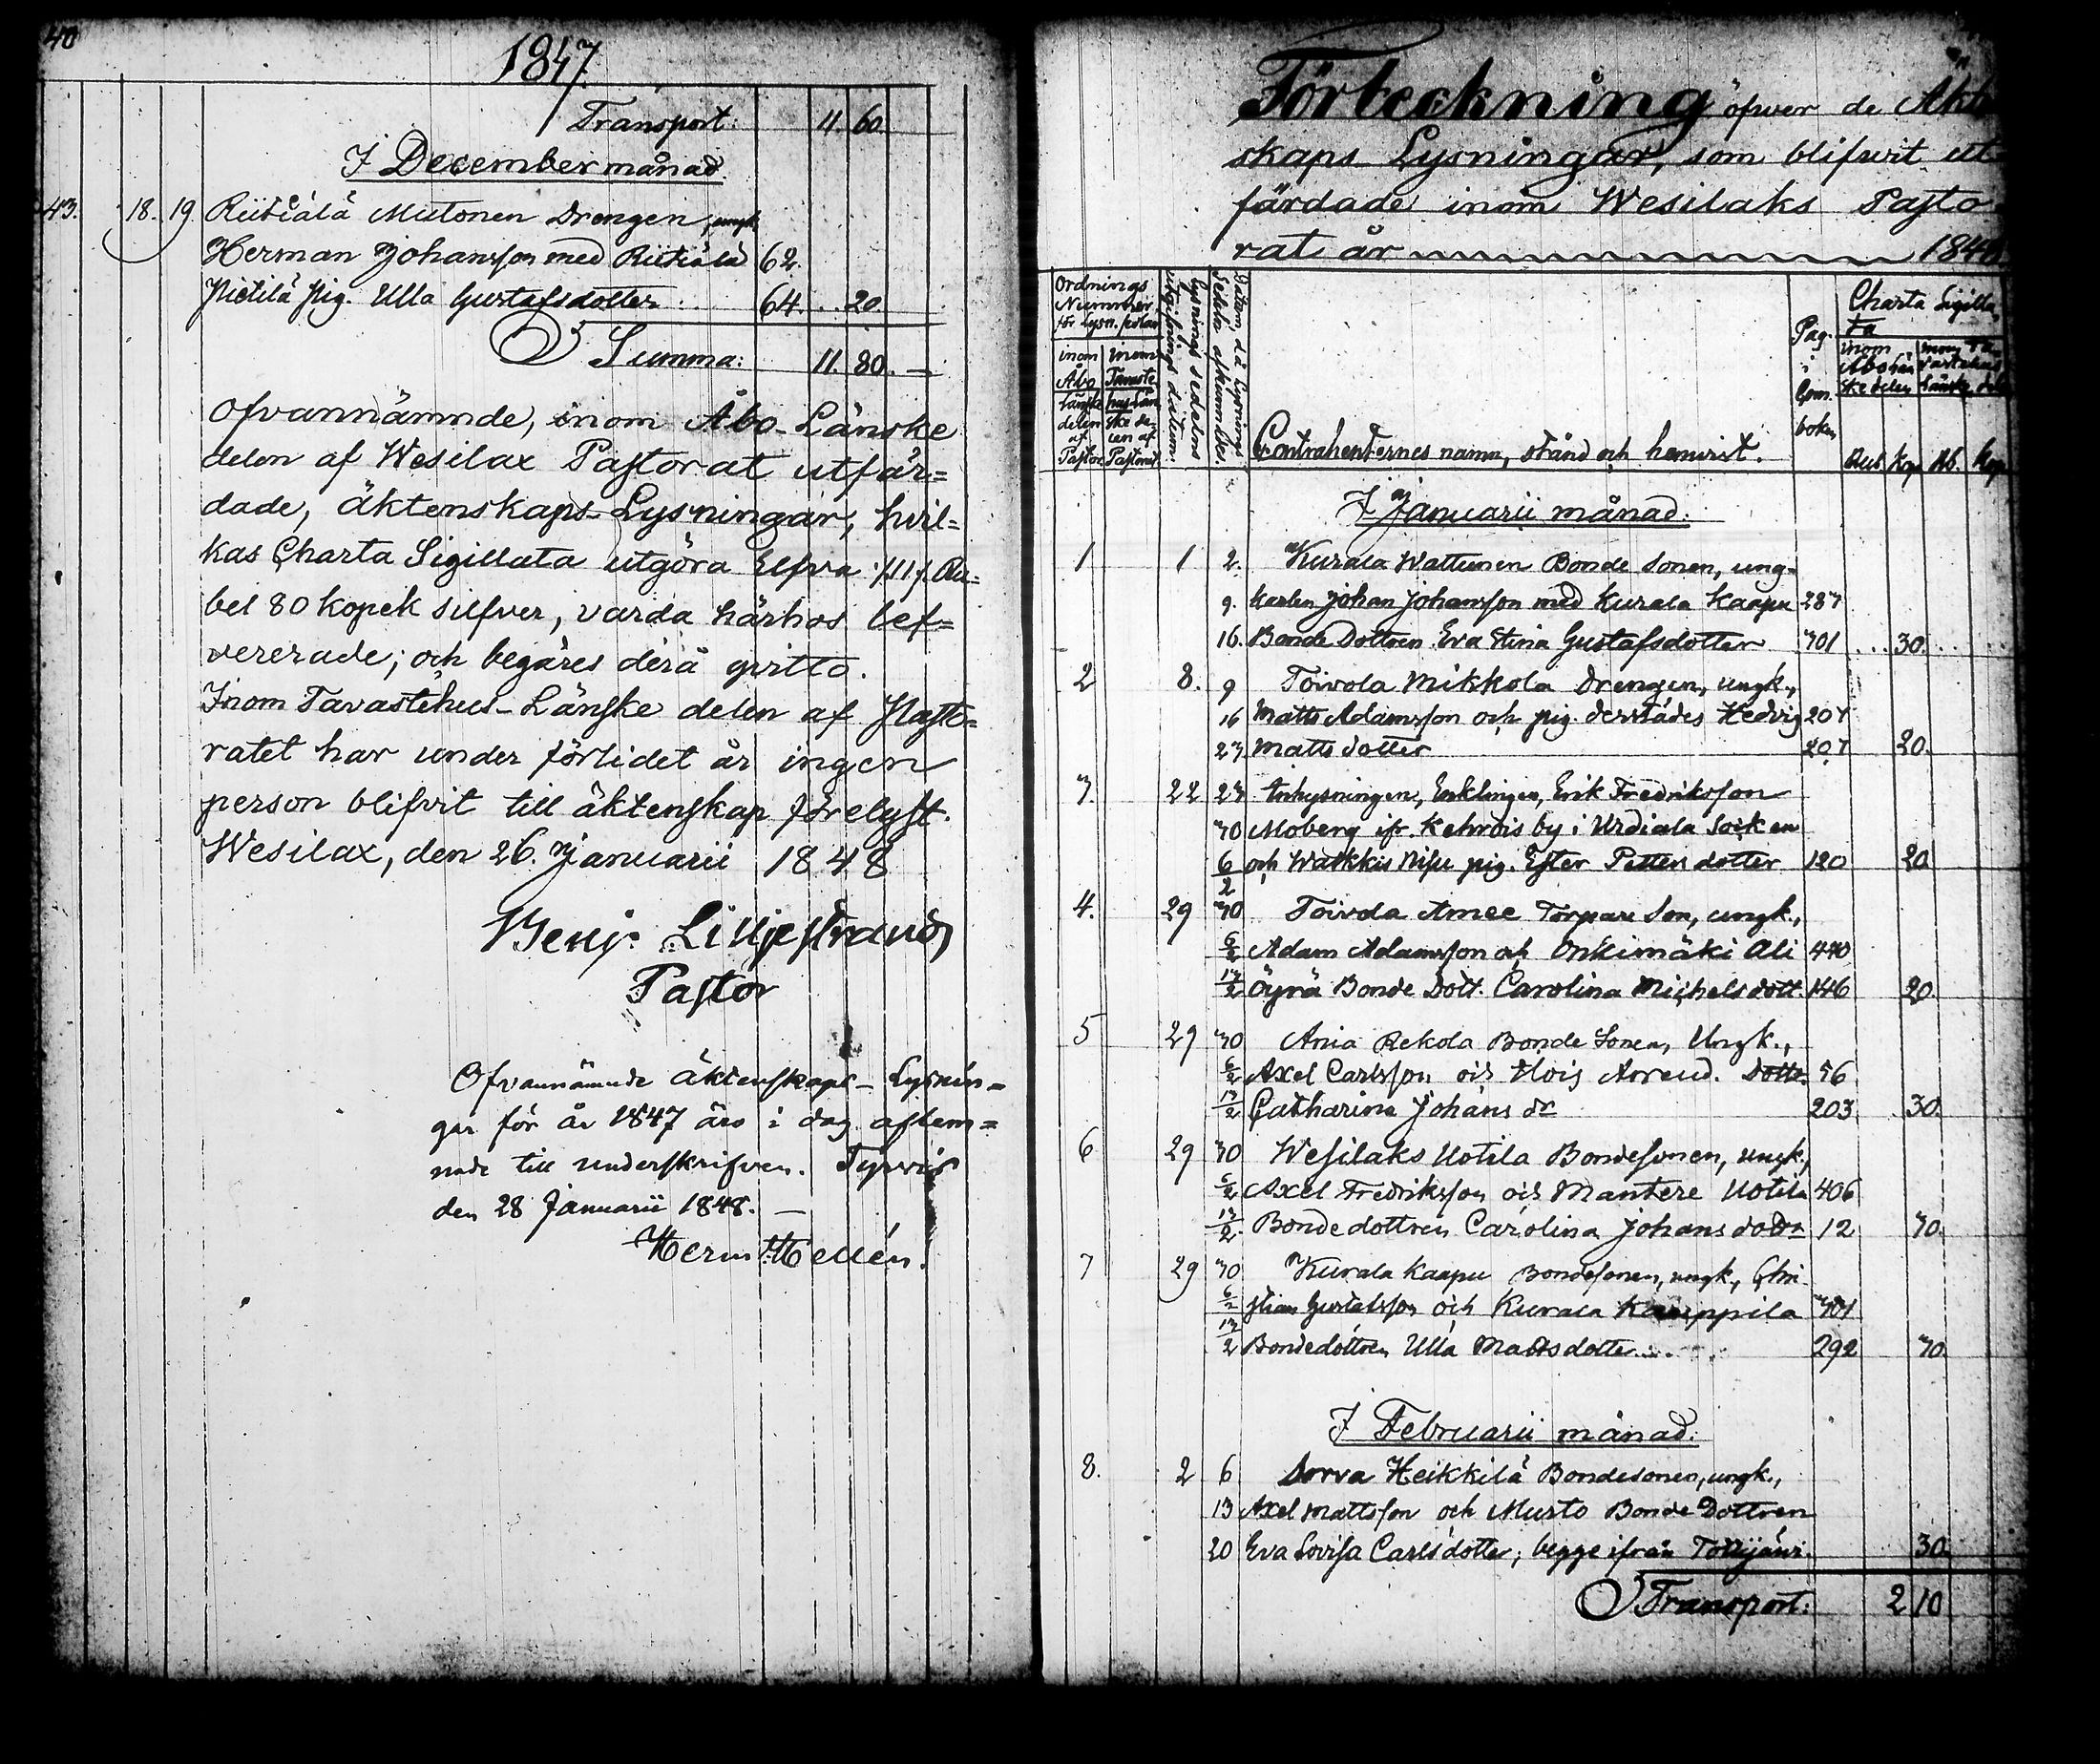 40
1847
Transport: 11. 60
I December månad.
43. 18. 19 Riitiälä Mutonen Drengen, ungk
Herman Johansson med Riitiälä 62.
Pietilä pig. Ulla Gustafsdotter 64. . . 20
Summa: 11. 80. —
Ofvannämnde, inom Åbo-Länske
delen af Wesilax Pastorat utfär=
dade, äktenskaps-Lysningar, hvil=
kas Charta Sigillata utgöra Elfva /:11:/ Ru=
bel 80 kopek silfver, varda härhos lef=
vererade; och begäres derå qvitto.
Inom Tavastehus-Länske delen af Pasto=
ratet har under förlidet år ingen
person blifvit till äktenskap förelyst.
Wesilax, den 26. Januarii 1848
Benj. Liljestrand
Pastor
Ofvannämnde äktenskaps-Lysnin=
gar för år 1847 äro i dag aflem=
nade till underskrifven. Tyrvis
den 28 Januarii 1848. —
Herm. Hellén.
Förteckning öfver de Äkte
skaps Lysningar, som blifvit ut
färdade inom Wesilaks Pasto
rat år 1848
Ordnings
Nummer
för Lysn. sedlar
inom Åbo Länske delen af Pastor.
inom Tavastehus Länske delen af Pastorat
Lysnings sedelns utgifnings datum.
Datum då Lysnings Sedeln afkunnades.
Contrahenternes namn, stånd och hemvist.
Pag. i Com. boken
Charta Sigilla
ta
inom Åbo län ske delen
inom Ta vastehus länske del
Rub. Kop Rb. Kop
I Januarii månad.
1 1 2. Kurala Wattunen Bonde Sonen, ung=
9. karlen Johan Johansson med Kurala Kaapu 287
16. Bonde Dottren Eva Stina Gustafsdotter 301 . . . 30.
2 8. 9 Toivola Mikkola Drengen, ungk.,
16 Matts Adamsson och pig. derstädes Hedvig 207
23 Matts dotter 207 20.
3. 22 23 Inhysningen, Enklingen, Erik Fredriksson
30 Moberg ifr. Kehrois by i Urdiala Socken
6/2 och Wakkis Nipu pig. Ester Petters dotter 120 20
4. 29 30 Toivola Amee Torpare Son, ungk.,
6/2 Adam Adamsson och Onkimäki Ali 440
13/2 Öyrä Bonde Dott. Carolina Michels dott. 146 20.
5 29 30 Ania Rekola Bonde Sonen, Ungk.,
6/2 Axel Carlsson och Hois Arrend. Dottr. 56
13/2 Catharina Johans dr 203 30.
6 29 30 Wesilaks Uotila Bondesonen, ungk.,
6/2 Axel Fredriksson och Mantere Uotila 406
13/2 Bonde dottren Carolina Johans dottr 12 30.
7 29 30 Kurala Kaapu Bondesonen, ungk., Chri-
6/2 stian Gustafsson och Kurala Kauppila 301
13/2 Bondedottren Ulla Mattsdotter 292 30
I Februarii månad.
8. 2 6 Sorva Heikkilä Bondesonen, ungk.,
13 Axel Mattsson och Musto Bonde Dottren
20 Eva Lovisa Carlsdotter; begge ifrån Tottijärvi. 30
Transport: 2 10